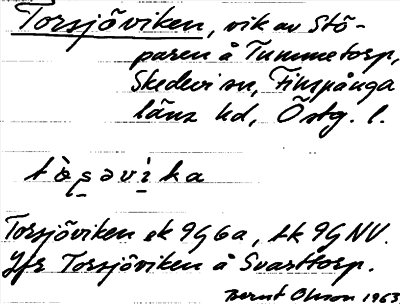 Torsjöviken, vik av Stö-
paren å Tummetorp,
Skedevi sn, Finspånga
läns hd, Östg. l.
Torsjöviken ek 9G6a, tk 9G NV.
Jfr Torsjöviken å Svarttorp.
Bernt Olsson 1963